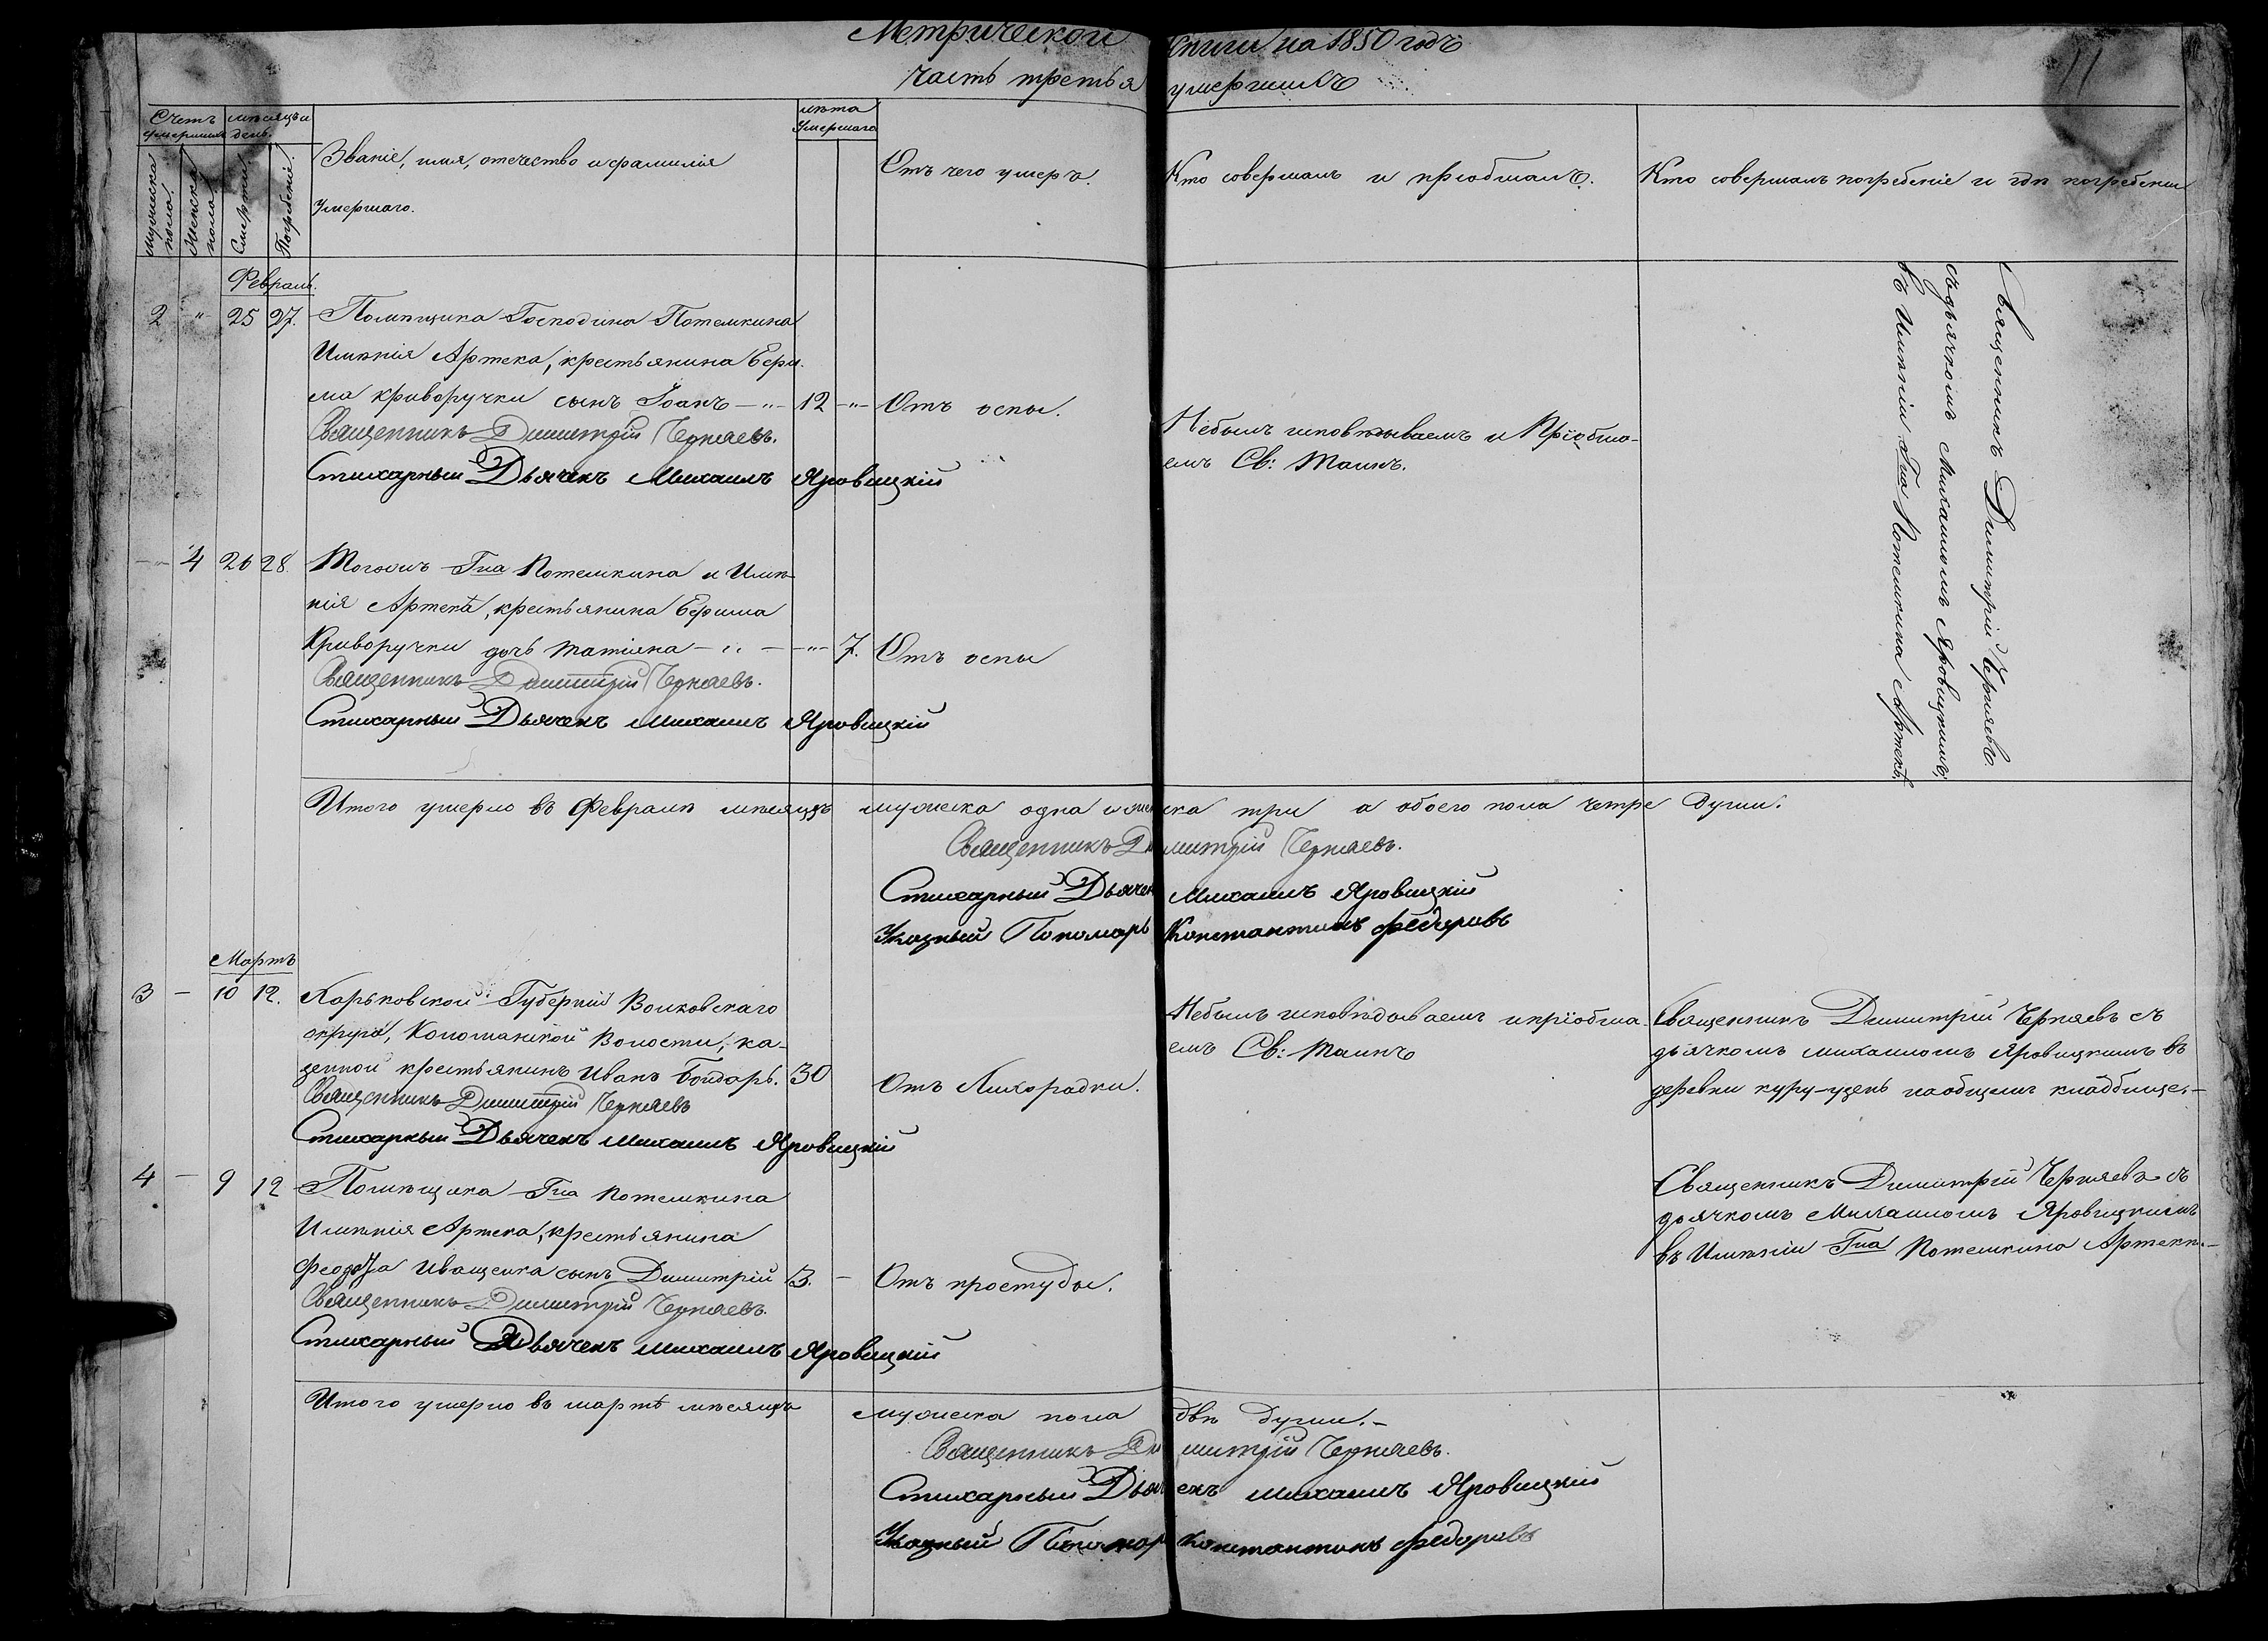 Метрической книги на 1850 годъ
часть третья умершихъ
11
Счетъ умершихъ
мѣсяцъ и день.
лѣта Умершаго
Мужеска пола.
Женска пола.
Смерти.
Погребенія.
Званіе, имя, отечество и фамилія
Умершаго.
Отъ чего умеръ.
Кто совершалъ и пріобщалъ.
Кто совершалъ погребеніе и гдѣ погребены
Февраль.
2 " 25 27. Помѣщика Господина Потемкина
Имѣнія Артека, крестьянина Ефи-
ма Криворучки сынъ Іоанъ — " — 12 — " — Отъ оспы.
Священникъ Димитрій Черняевъ.
Стихарный Дьячекъ Михаилъ Яровицкій
Небылъ исповѣдываемъ и Пріобща-
емъ Св: Таинъ.
Священникъ Димитрій Черняевъ
съ дьячкомъ Михаиломъ Яровицкимъ,
въ Имѣніи Гна Потемкина Артекѣ.
— " — 4 26 28. Тогожъ Гна Потемкина и Имѣ-
нія Артека, крестьянина Ефима
Криворучки дочь Татіяна — " — — " — 7. Отъ оспы
Священникъ Димитрій Черняевъ.
Стихарный Дьячекъ Михаилъ Яровицкій
Итого умерло въ Февралѣ мѣсяцѣ мужеска одна и женска три а обоего пола четре души.
Священникъ Димитрій Черняевъ.
Стихарный Дьячекъ Михаилъ Яровицкій
Указный Пономарь Константинъ Федоровъ
Мартъ
3 — 10 12. Харьковской Губерніи Волковскаго
округа, Коломацкой Волости, ка-
зенной крестьянинъ Иванъ Бондарь. 30 Отъ Лихорадки.
Священникъ Димитрій Черняевъ
Стихарный Дьячекъ Михаилъ Яровицкій
Небылъ исповѣдываемъ и пріобща-
емъ Св: Таинъ
Священникъ Димитрій Черняевъ съ
дьячкомъ Михаиломъ Яровицкимъ въ
деревни куру-узень наобщемъ кладбище.—
4 — 9 12 Помѣщика Гна Потемкина
Имѣнія Артека, крестьянина
Феодора Иващенка сынъ Димитрій 3. — Отъ простуды.
Священникъ Димитрій Черняевъ.
Стихарный Дьячекъ Михаилъ Яровицкій
Священникъ Димитрій Черняевъ съ
дьячкомъ Михаиломъ Яровицкимъ
въ Имѣніи Гна Потемкина Артекѣ.—
Итого умерло въ мартѣ мѣсяцѣ мужеска пола двѣ души.—
Священникъ Димитрій Черняевъ.
Стихарный Дьячекъ Михаилъ Яровицкій
Указный Пономарь Константинъ Федоровъ